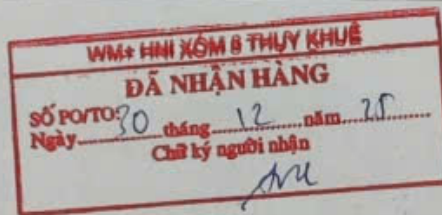 WM+ HNI XÓM 8 THỤY KHUÊ
ĐÃ NHẬN HÀNG
SỐ PO/TO:
Ngày 30 tháng 12 năm 25
Chữ ký người nhận